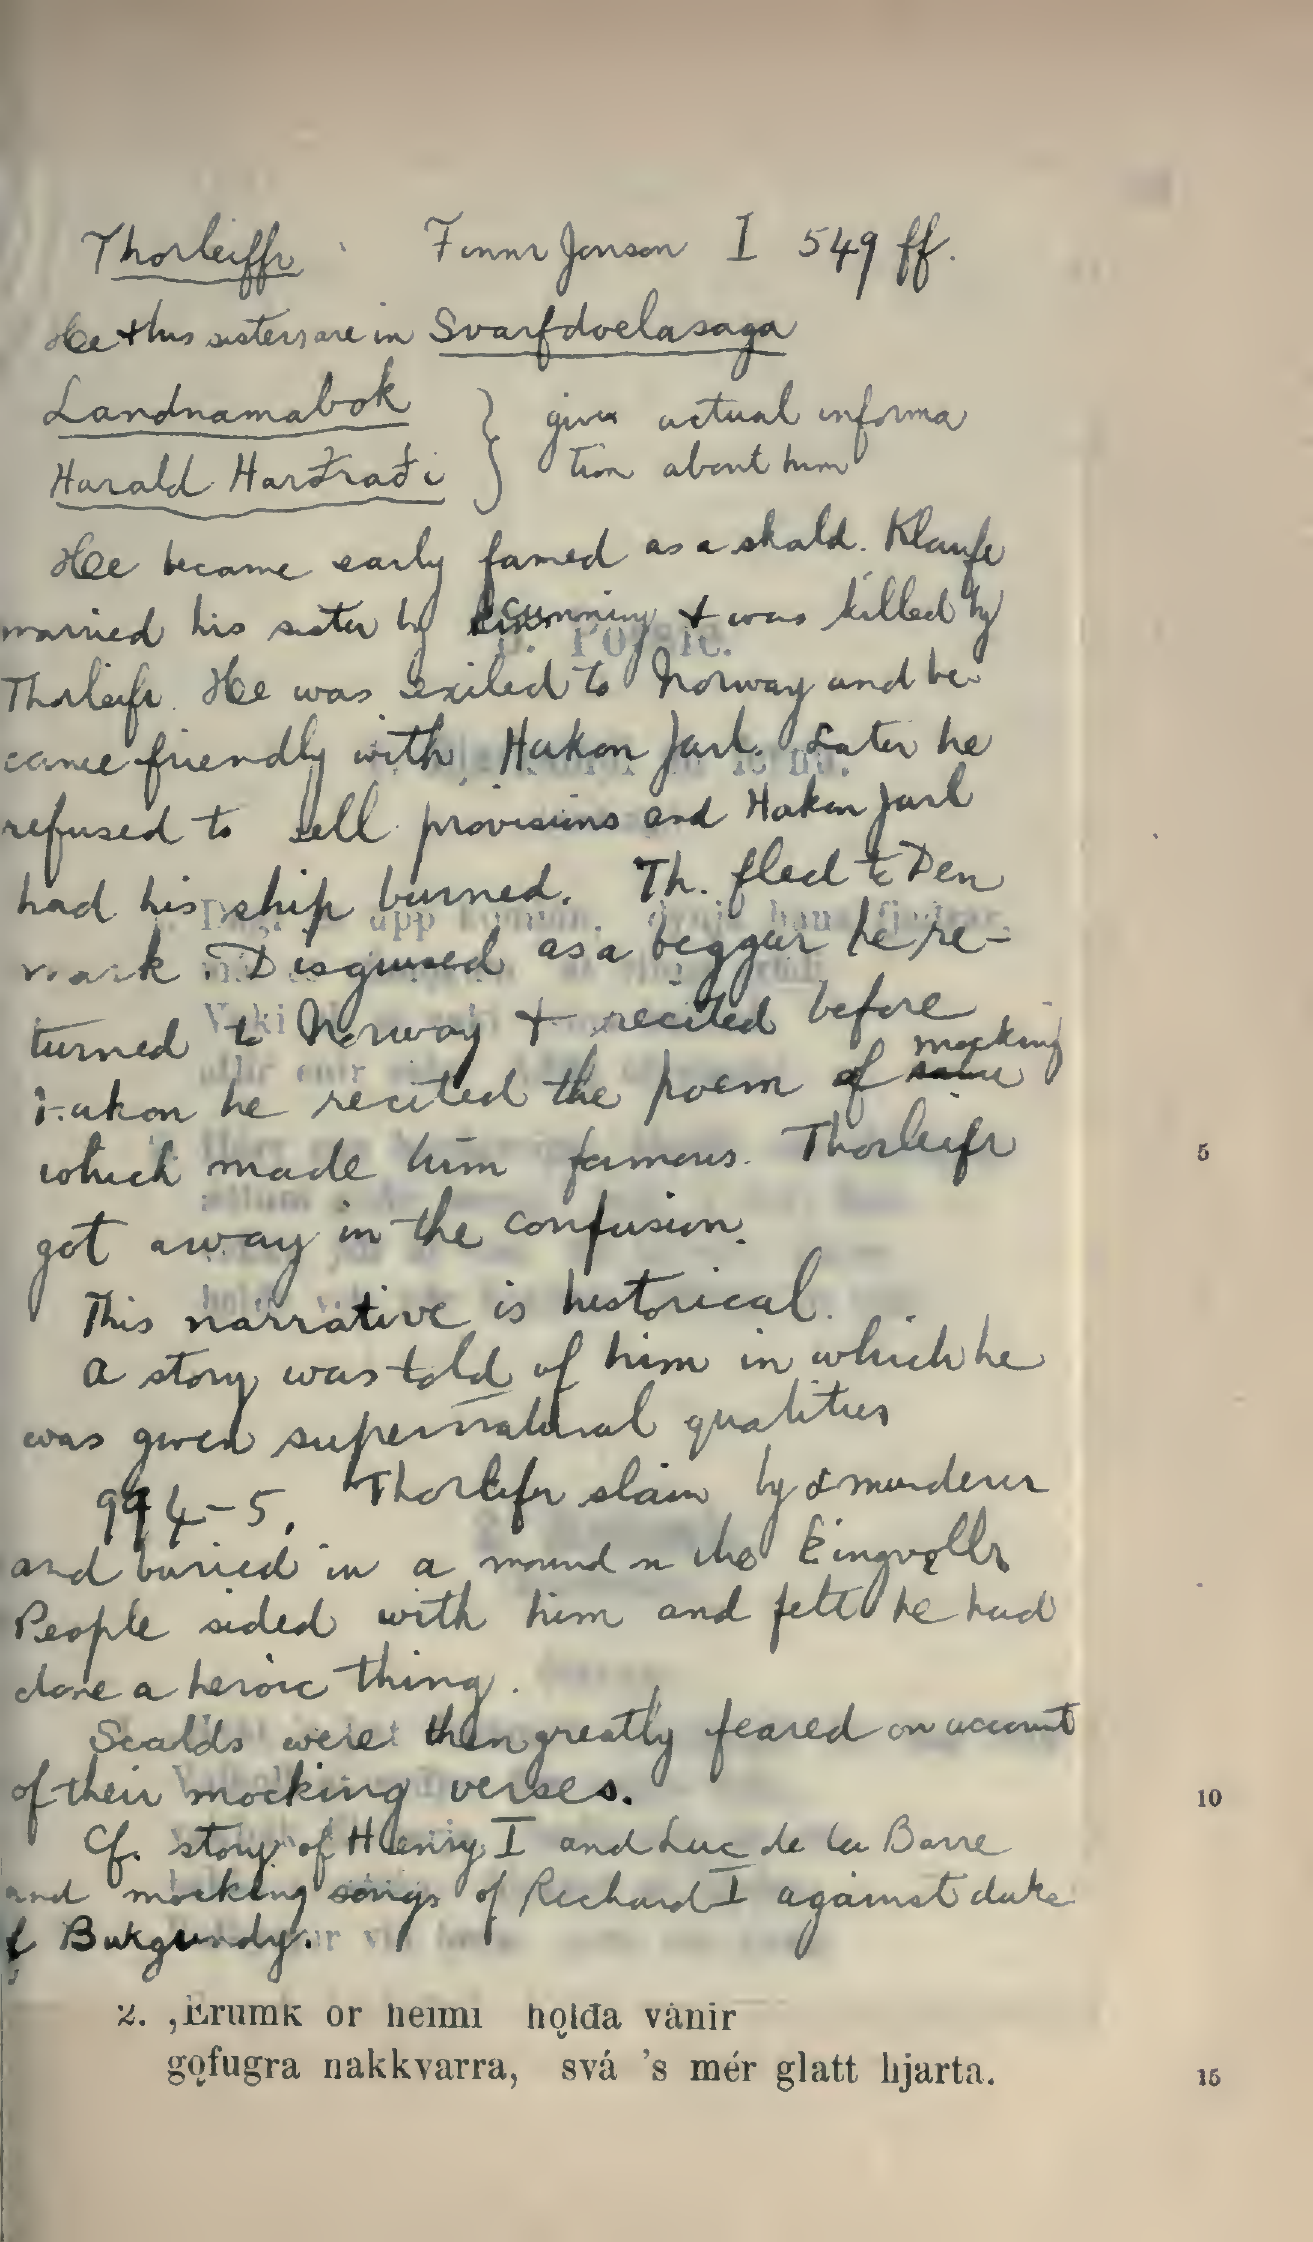 Thorleiffr Finnr Jonson I 549 ff.
He + his sisters are in Svarfdoelasaga
Landnamabok } gives actual informa
Harald Harđrađi } tion about him
He became early famed as a skald. Klaufe
married his sister by cunning + was killed by
Thorleifr. He was exiled to Norway and be-
came friendly with Hakon Jarl. Later he
refused to sell provisions and Hakon Jarl
had his ship burned. Th. fled to Den
mark Disguised as a beggar he re-
turned to Norway + recited before
Hakon he recited the poem of mocking
which made him famous. Thorleifr
got away in the confusion.
This narrative is historical.
A story was told of him in which he
was given supernatural qualities
994-5. Thorleifr slain by a murderer
and buried in a mound in the Þingvollr
People sided with him and felt he had
done a heroic thing.
Scalds were then greatly feared on account
of their mocking verses.
Cf. story of Henry I and Luc de la Barre
and mocking songs of Richard I against duke
of Burgundy.
2. ‚Erumk or heimi hǫlđa vánir
gǫfugra nakkvarra, svá 's mér glatt hjarta.
5
10
15